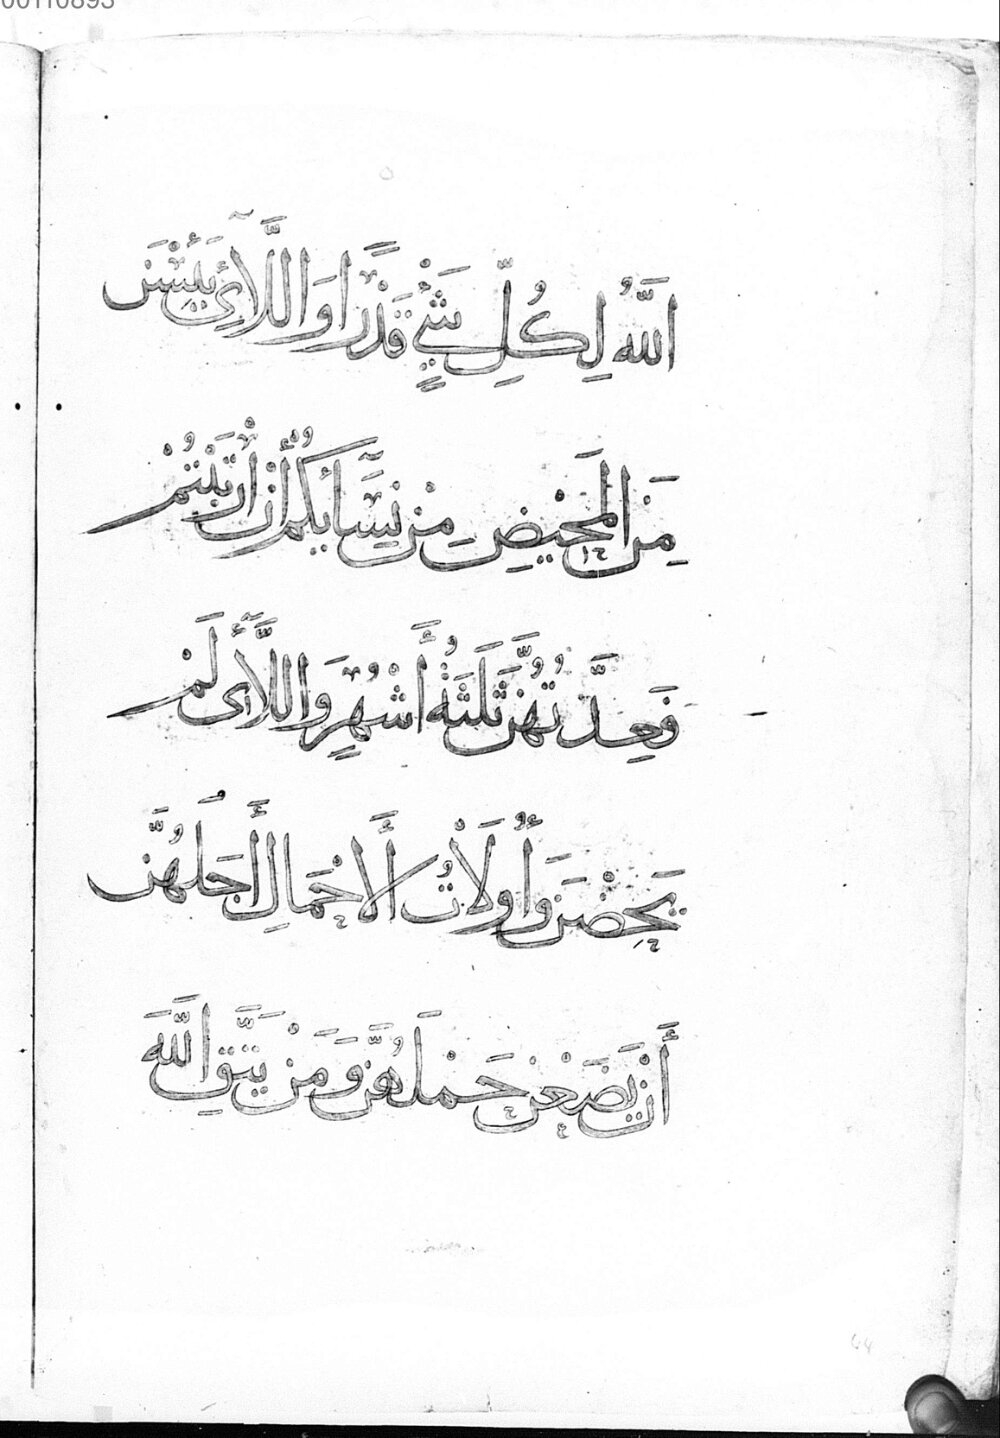 00110893
اللَّهُ لِكُلِّ شَيْءٍ قَدْرًا وَاللَّآئِي يَئِسْنَ
مِنَ الْمَحِيْضِ مِنْ نِسَآئِكُمْ أَنِ ارْتَبْتُمْ
فَعِدَّتُهُنَّ ثَلَثَةُ أَشْهُرٍ وَاللَّآئِى لَمْ
يَحِضْنَ وَأُولَاتُ الْأَحْمَالِ أَجَلُهُنَّ
أَنْ يَضَعْنَ حَمْلَهُنَّ وَمَنْ يَتَّقِ اللَّهَ